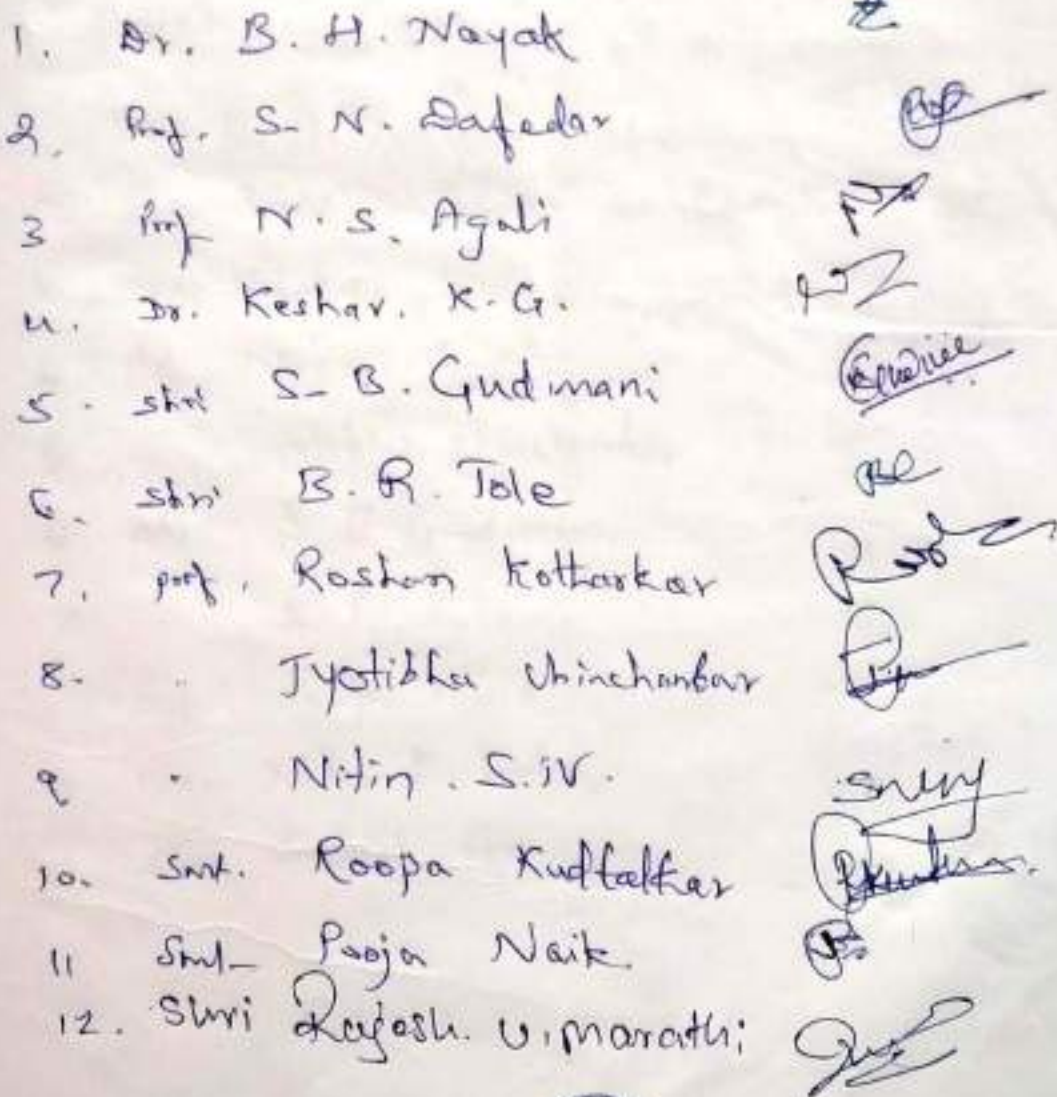 1. Dr. B. H. Nayak
2. Prof. S. N. Dafedar
3 Prof N. S. Agali
4. Dr. Keshav. K. G.
5. Shri S. B. Gudimani
6. Shri B. R. Tole
7. Prof. Roshan Kotharkar
8. " Jyotibha Chinchankar
9 " Nitin. S. N.
10. Smt. Roopa
11 Smt Pooja Naik
12. Shri Rajesh. V. Marathi